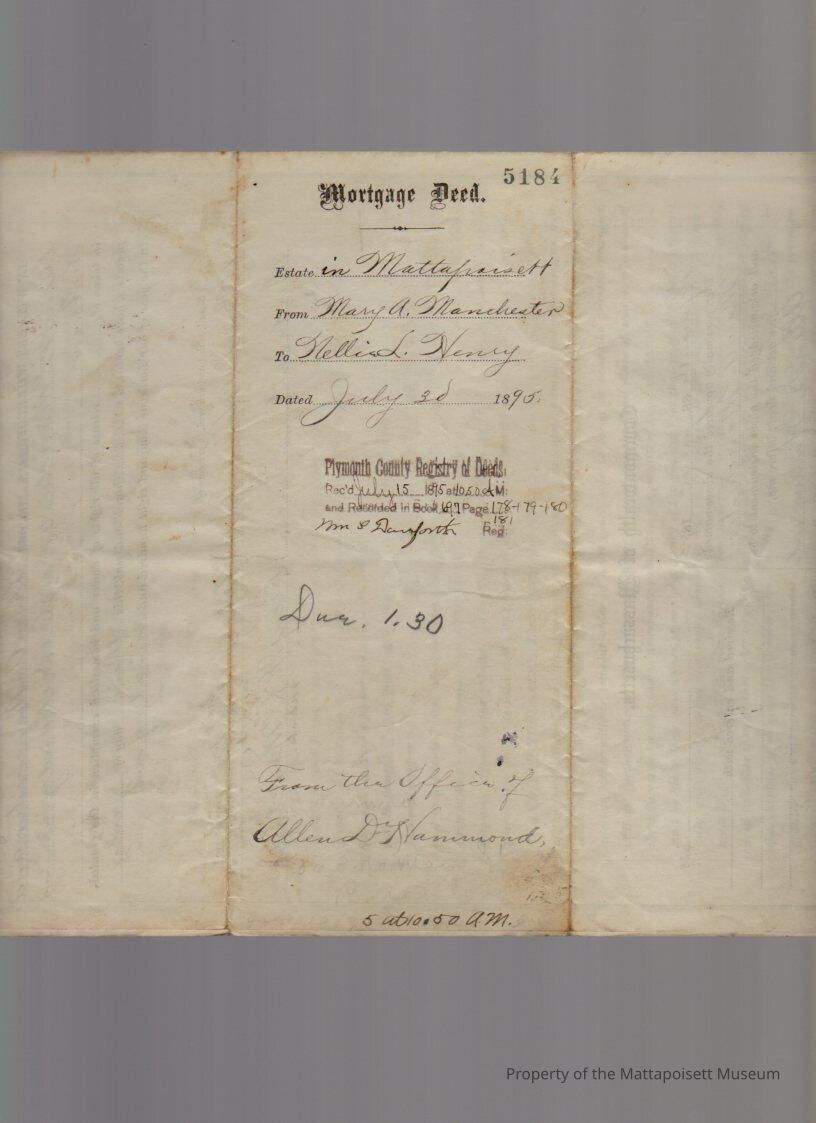 5184
Mortgage Deed.
Estate in Mattapoisett
From Mary A. Manchester
To Nellie L. Henry
Dated July 3d 1895.
Plymouth County Registry of Deeds.
Rec'd July 15 1895 at 10.50 A M.
and Recorded in Book 697 Page 178-179-180
181
Wm S Danforth Reg.
Due. 1.30
From the Office of
Allen D. Hammond,
5 at 10.50 A.M.
Property of the Mattapoisett Museum